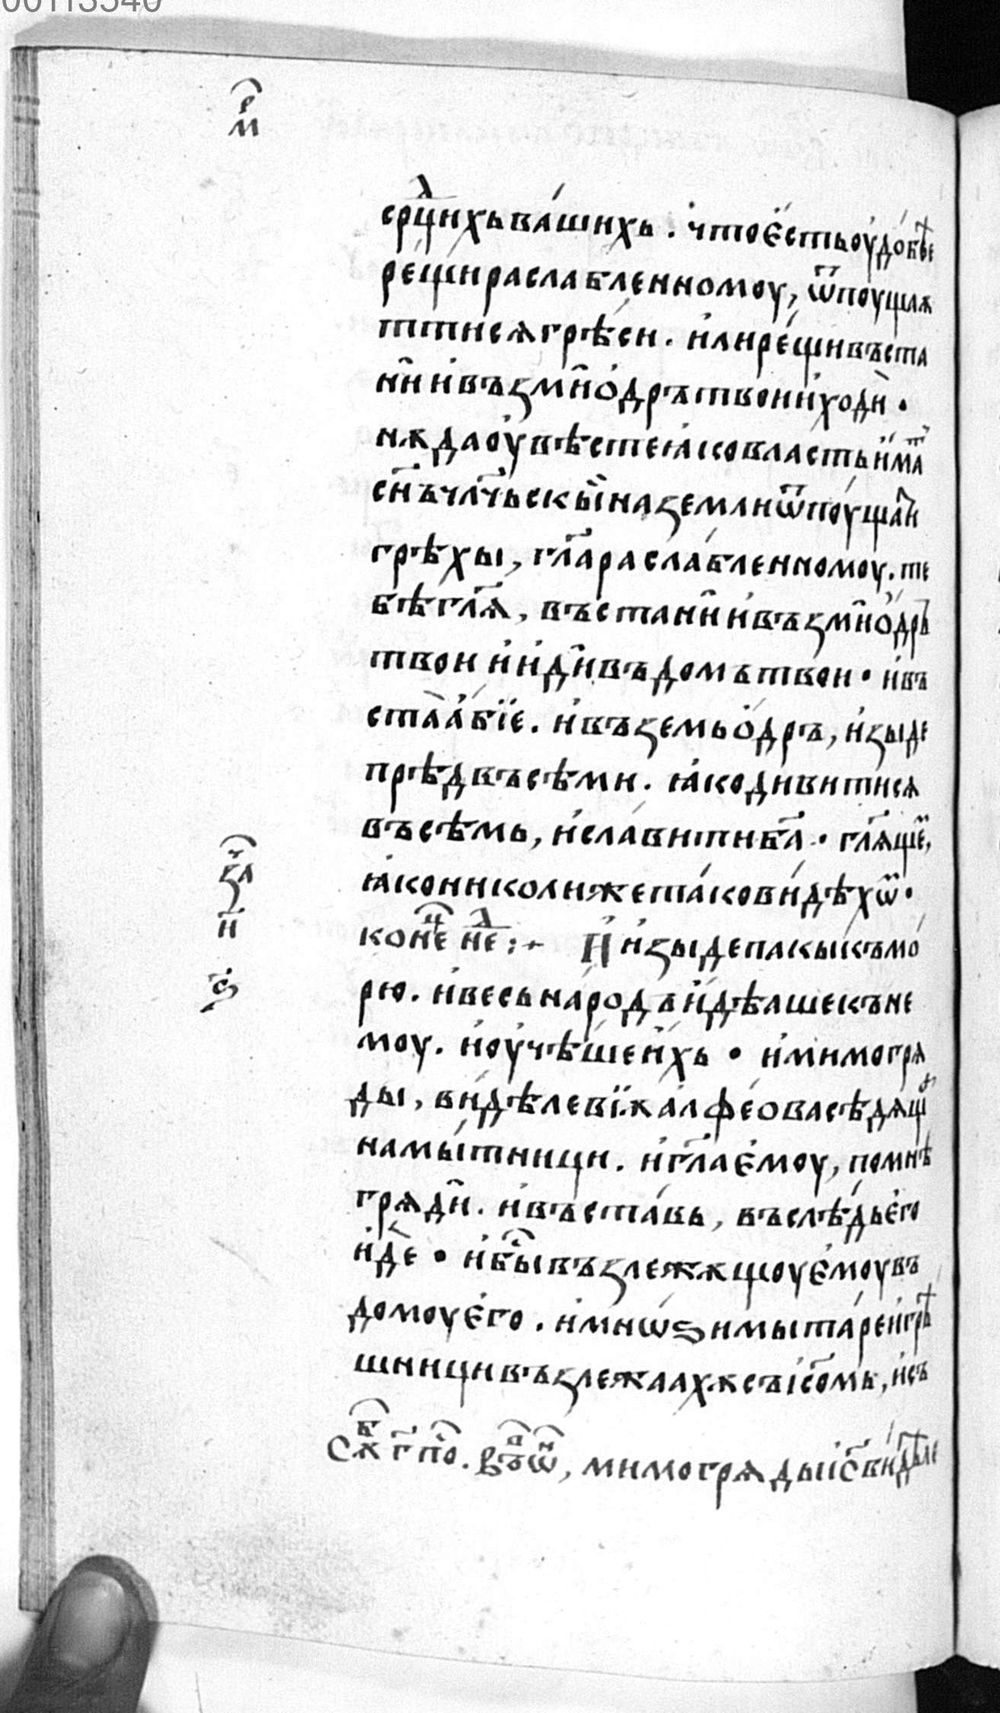 00113540
срⷣцихь ва́шихь . что є҆сть оу҆до́бѣе
рещи раслабленномоу, ѿпоущаѫ
ттисѧ грѣси . и҆ли ре́щи въста
ни и҆ възми о҆дръ твои и҆ ходи .
нѫ да оу҆вѣсте ꙗко власть и҆мⷶа
сн҃ъ чл҃чьскыи на земли ѿпоущати
грѣхы , гл҃а раслабленномоу . те
бѣ гл҃ѧ , въстани и҆ възми о҆дръ
твои и҆ иди въ домъ твои . и҆ въ
ста а҆бїе . и҆ въземь о҆дръ , и҆зыде
прѣд въсѣми . ꙗко дивитисѧ
въсѣмь , и҆ славити б҃а . гл҃ѧще ,
ꙗко николиже та́ко видѣхѡⷨ .
коне́ц неⷣ :~ И҆ и҆зыде пакы къ мо
рю . и҆ весь наро́дъ и҆дѣаше къ не
моу . и҆ оу҆чѣше и҆хь . и҆ мимогрѧ
ды , ви́дѣ леви́ѫ алфе́ова сѣдѧщⷶ
на мы́тници . и҆ гл҃а є҆моу , по мнѣ
грѧди . и҆ въста́вь , въслѣдь є҆го
и҆де . и҆ бы́ⷭ възлежѫщоу є҆моу въ
домоу є҆го . и҆ мнѡѕи мыта́ре и҆ грѣ
шници възлежаахѫ съ і҆с҃омь , и҆ съ
Сѫⷠ г҃ поⷭ . въ ѡⷩ , мимогрѧды і҆с҃ ви́дѣ ле
м҃е
за҃ч
н҃